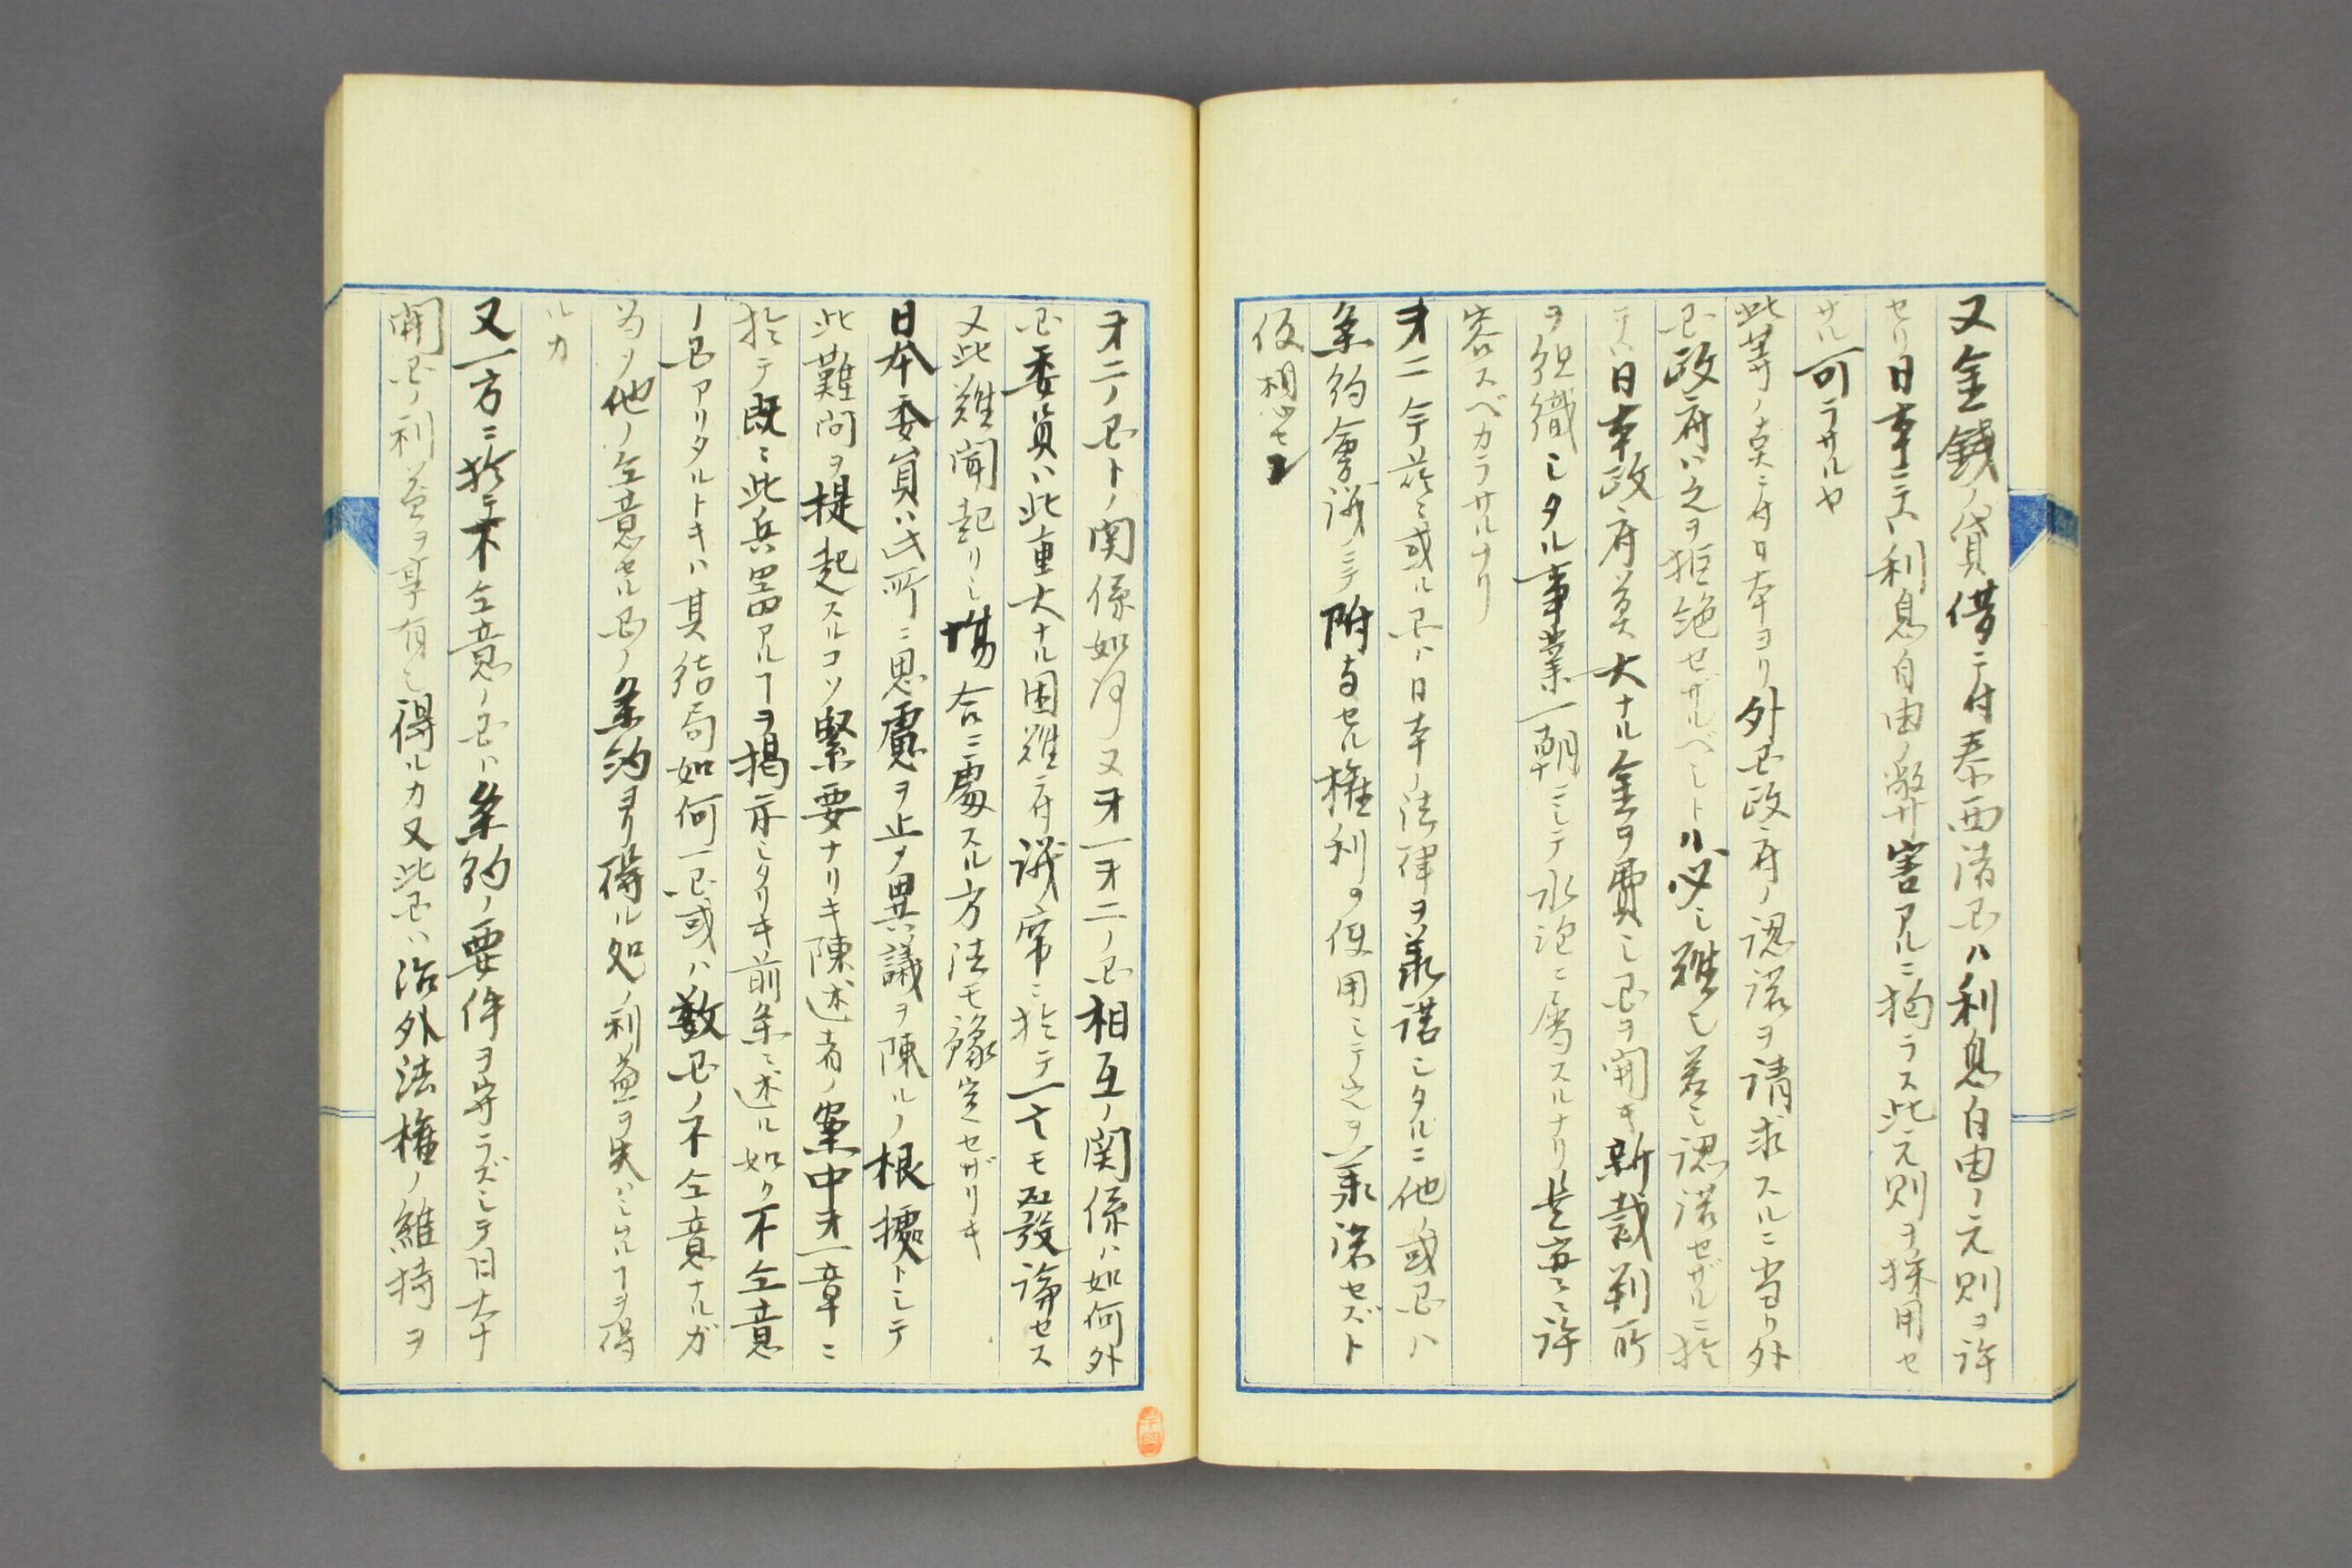 又金銭ノ貸借ニ付泰西諸国ハ利息自由ノ元則ヲ許
セリ日本ニテハ利息自由ノ弊害アルニ拘ラス此元則ヲ採用セ
サル可ラサルヤ
此等ノ莫ニ付日本ヨリ外国政府ノ認諾ヲ請求スルニ当リ外
国政府ハ之ヲ拒絶セザルベシトハ必シ難シ若シ認諾セザルニ於
テハ日本政府莫大ナル金ヲ費シ国ヲ開キ新裁判所
ヲ組織シタル事業一朝ニシテ水泡ニ属スルナリ是豈ニ許
容スベカラサルナリ
才二 今茲ニ或ル国ハ日本ノ法律ヲ承諾シタルニ他ノ或国ハ
条約會議ニテ附与セル権利ヲ使用シテ之ヲ承諾セズト
仮想セヨ
才二ノ国トノ関係如何又才一才二ノ国相互ノ関係ハ如何外
国委員ハ此重大ナル困難ニ付議席ニ於テ一言モ発論セス
又此難聞起リシ場合ニ處スル方法モ豫定セザリキ
日本委員ハ此所ニ思慮ヲ止メ異議ヲ陳ルノ根據トシテ
此難問ヲ提起スルコソ緊要ナリキ陳述者ノ案中才一章ニ
於テ既ニ此兵器アルヿヲ掲示シタリキ前条ニ述ル如ク不仝意
ノ国アリタルトキハ其結局如何一国或ハ数国ノ不仝意ナルガ
為メ他ノ仝意セル国ノ条約ヨリ得ル処ノ利益ヲ失ハシムルヿヲ得
ルカ
又一方ニ於テ不仝意ノ国ハ条約ノ要件ヲ守ラズシテ日本
開国ノ利益ヲ享有シ得ルカ又此国ハ治外法権ノ維持ヲ